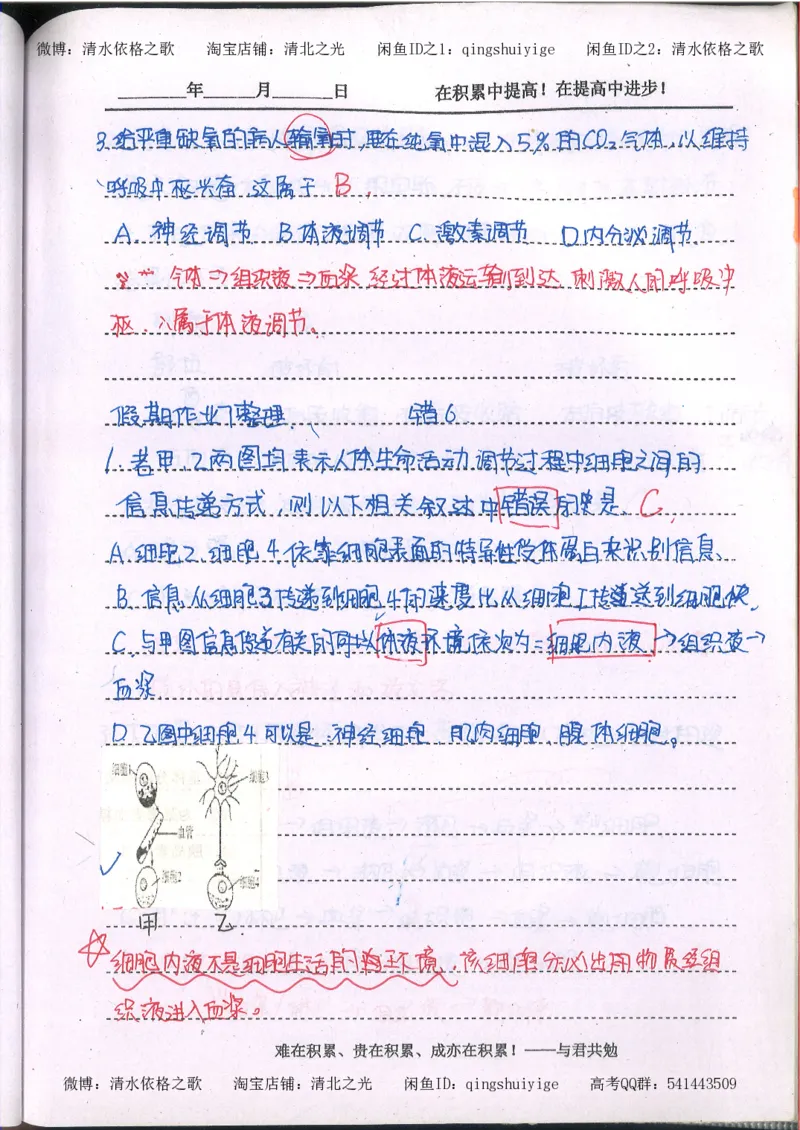 微博：清水依格之歌 淘宝店铺：清北之光 闲鱼ID之1：qingshuiyige 闲鱼ID之2：清水依格之歌
年 月 日 在积累中提高！在提高中进步！
3.给严重缺氧的病人输氧时，要在纯氧中混入5%的CO₂气体，以维持
呼吸中枢兴奋，这属于 B.
A. 神经调节 B.体液调节 C.激素调节 D.内分泌调节.
气体⇒组织液⇒血浆 经过体液运输到达 刺激人的呼吸中
枢, 属于体液调节。
假期作业门整理. 错6
1.若甲.乙两图均表示人体生命活动调节过程中细胞之间的
信息传递方式，则以下相关叙述中错误的是. C.
A.细胞2.细胞4.依靠细胞表面的特异性受体蛋白来识别信息、
B.信息从细胞3传递到细胞4的速度比从细胞1传递到细胞快.
C.与甲图信息传递有关的 体液环境依次为=细胞内液→组织液→
血浆.
D.乙图中细胞4可以是.神经细胞.肌肉细胞.腺体细胞。
细胞1
细胞3
血管
细胞2
细胞4
甲 乙
☆细胞内液不是细胞生活的 环境，该细胞分泌出的物质经组
织液进入血浆。
难在积累、贵在积累、成亦在积累！——与君共勉
微博：清水依格之歌 淘宝店铺：清北之光 闲鱼ID：qingshuiyige 高考QQ群：541443509